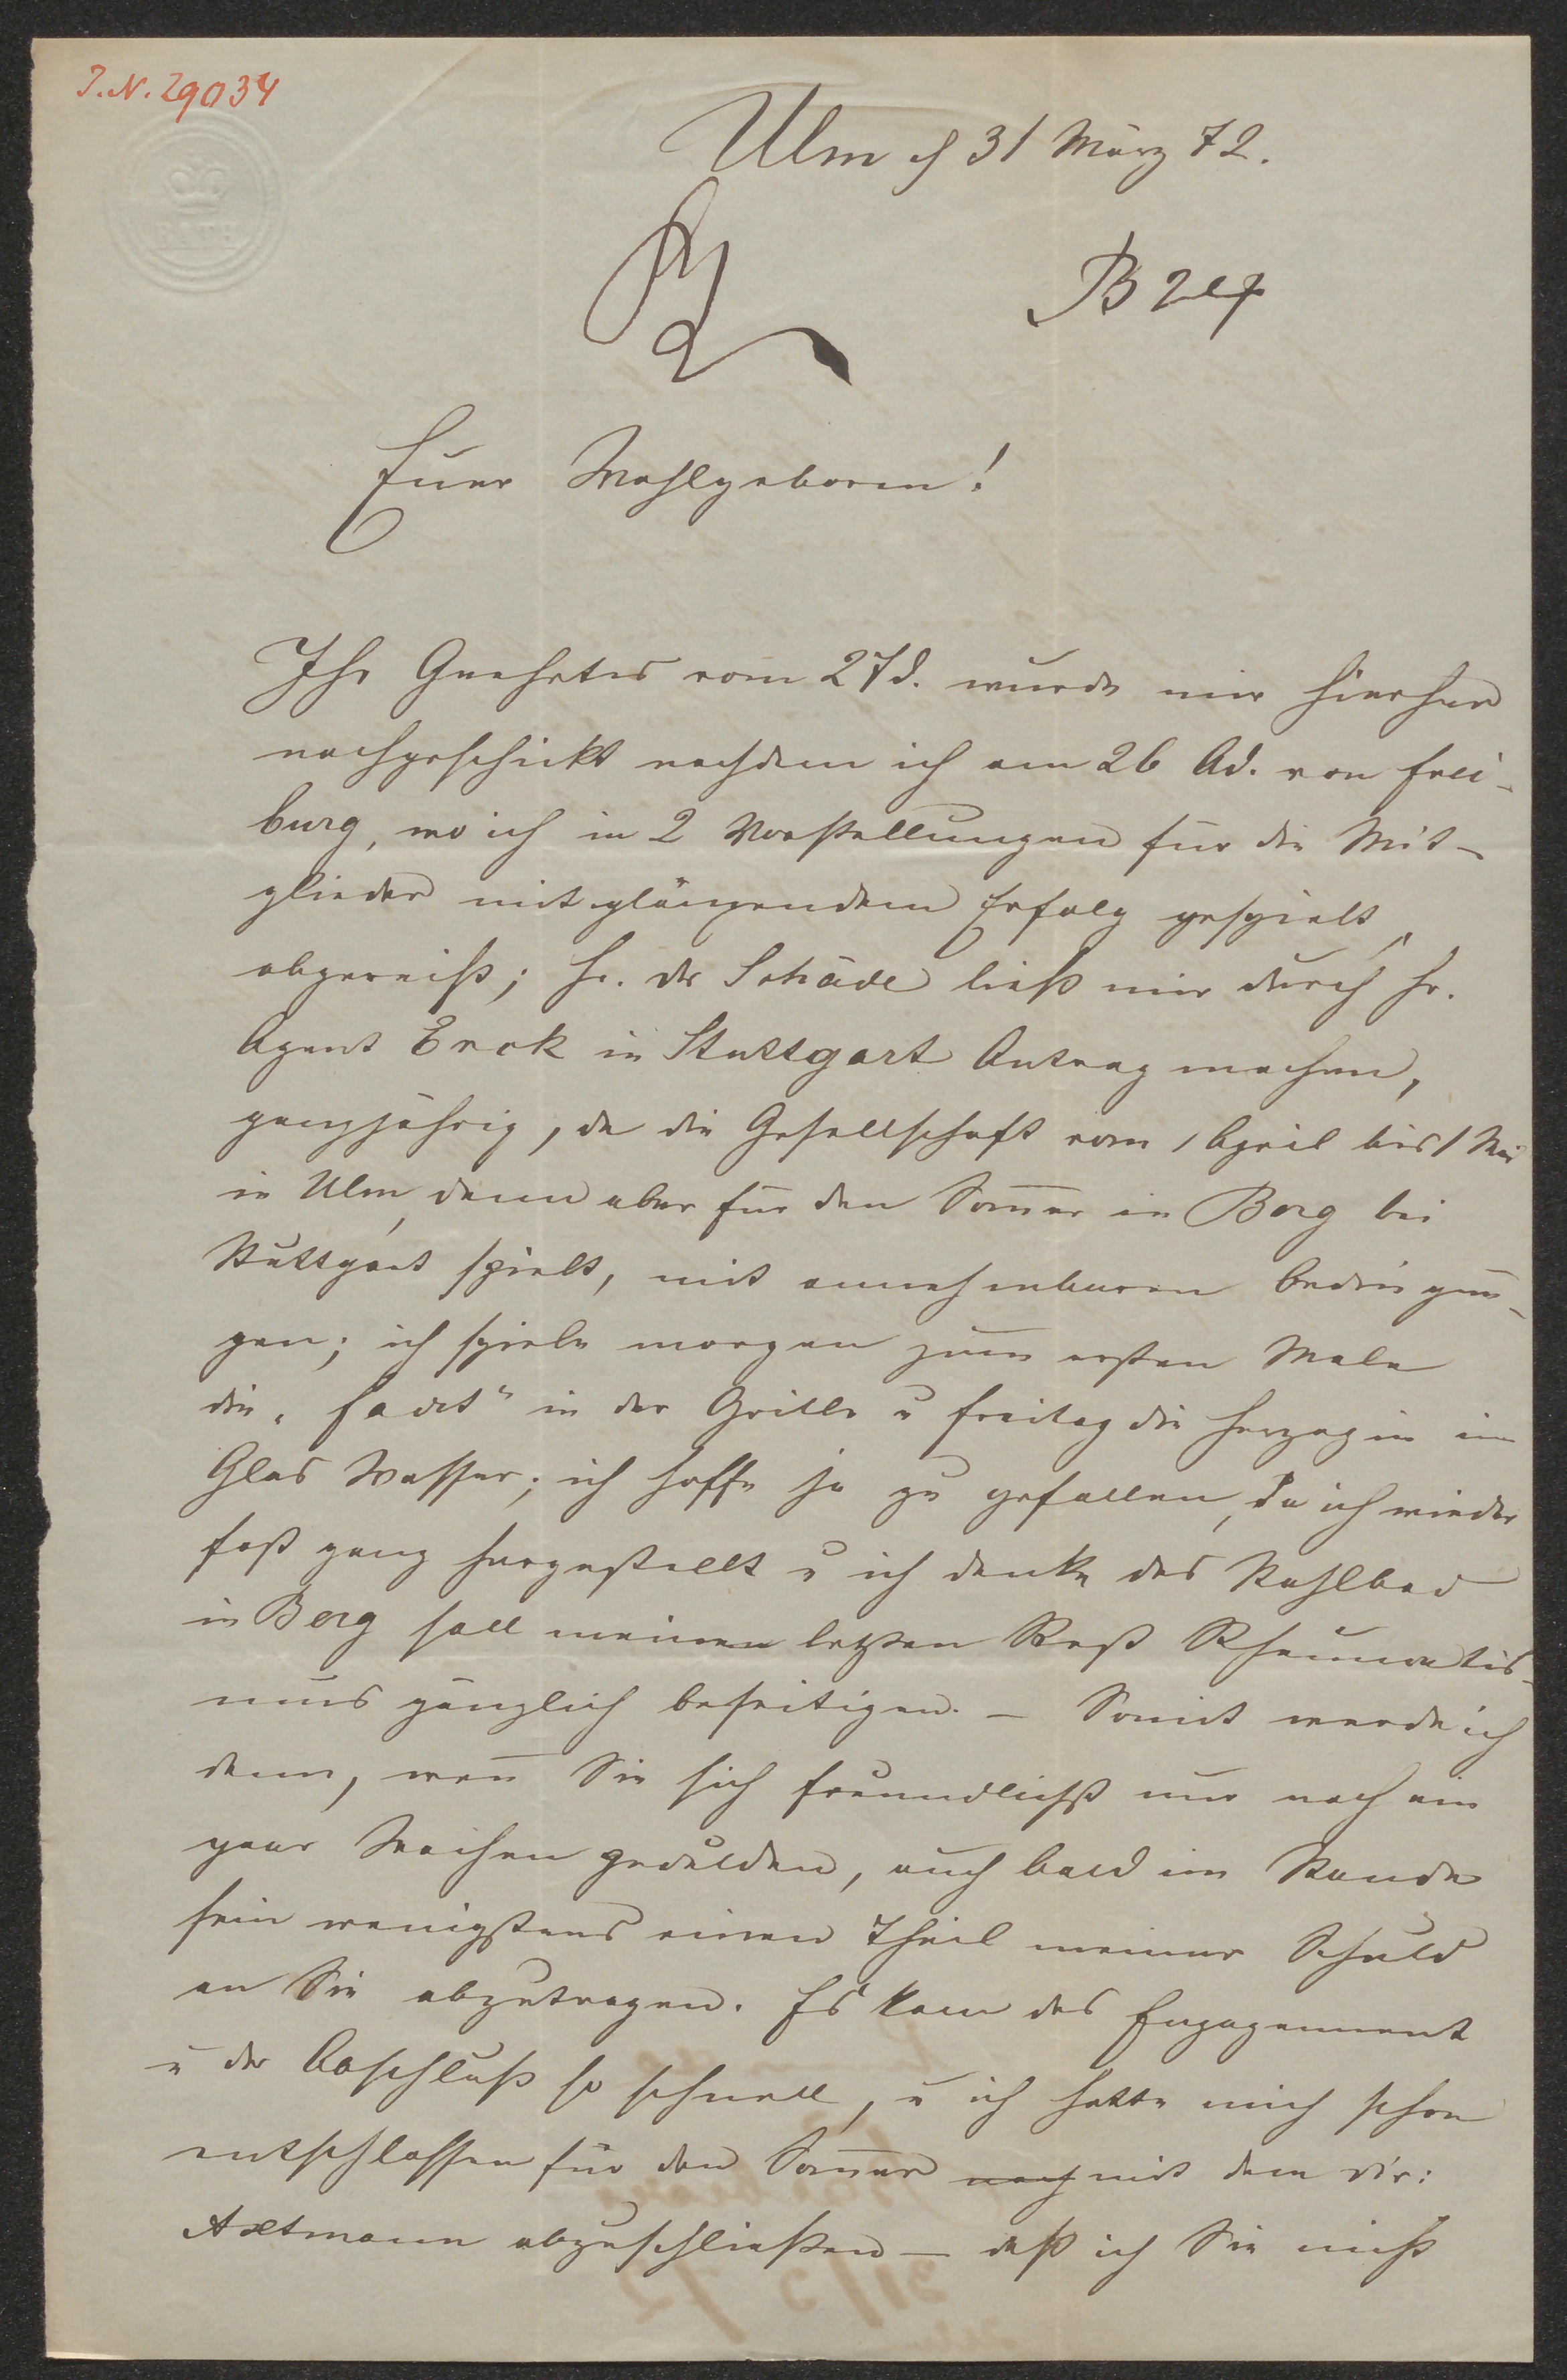 I.N. 29034
Ulm d 31 März 72.
Euer Wohlgeboren!
Ihr Geehrtes vom 27 d. wurde mir hierher
nachgeschickt nachdem ich am 26 Ad. von Frei-
burg, wo ich in 2 Vorstellungen für die Mit-
glieder mit glänzendem Erfolg gespielt,
abgereist; Hr. Dr Schäde ließ mir durch Hr.
Agent Erck in Stuttgart Antrag machen,
ganzjährig, da die Gesellschaft vom 1 April bis 1 Mai
in Ulm, dann aber für den Som̅er in Berg bei
Stuttgart spielt, mit annehmbaren Bedingun-
gen; ich spiele morgen zum ersten Male
die „Fadet" in der Grille u Freitag die Herzogin im
Glas Wasser; ich hoffe ja zu gefallen, da ich wieder
fast ganz hergestellt u ich denke das Stahlbad
in Berg soll meinen letzten Rest Rheumatis-
mus gänzlich beseitigen. – Somit werde ich
denn, wen̅ Sie sich freundlichst nur noch ein
paar Wochen gedulden, auch bald im Stande
sein wenigstens einen Theil meiner Schuld
an Sie abzutragen. Es kam das Engagement
u der Abschluß so schnell, u ich hatte mich schon
entschlossen für den Som̅er noch mit dem Dir:
Axtmann abzuschließen – daß ich Sie nicht